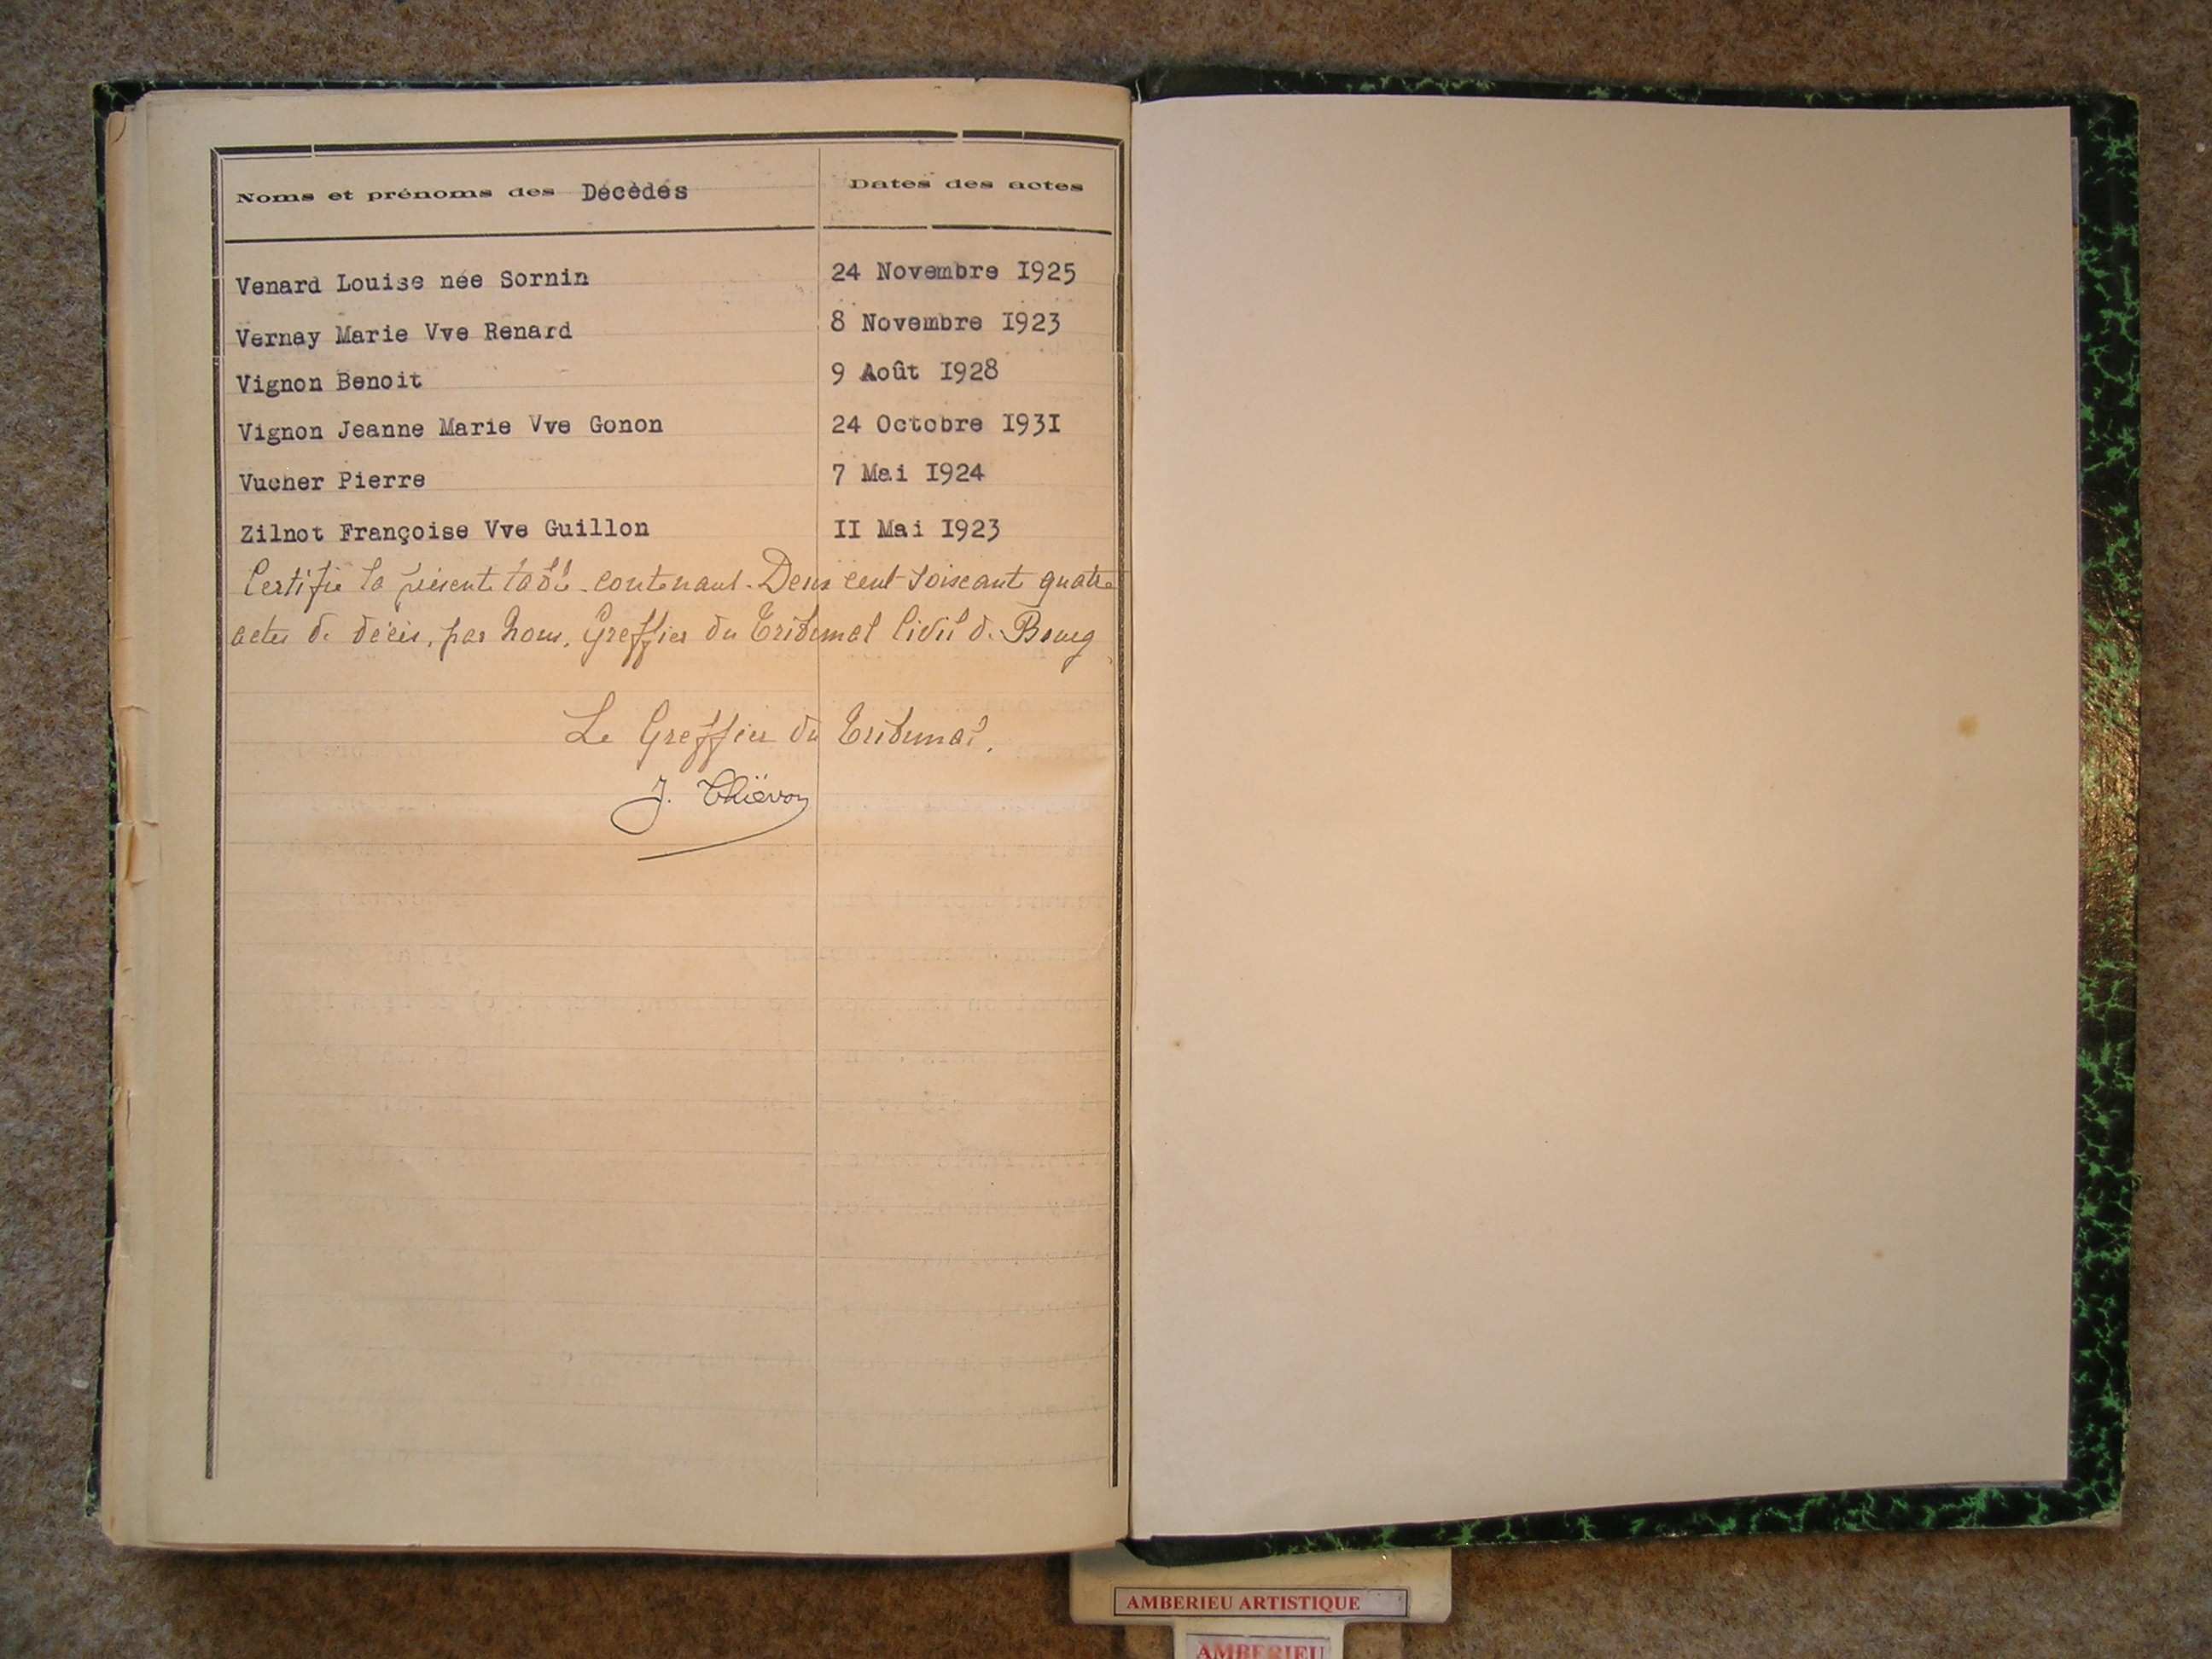 Noms et prénoms des Décédés
Dates des actes
Venard Louise née Sornin 24 Novembre 1925
Vernay Marie Vve Renard 8 Novembre 1923
Vignon Benoit 9 Août 1928
Vignon Jeanne Marie Vve Gonon 24 Octobre 1931
Vucher Pierre 7 Mai 1924
Zilnot Françoise Vve Guillon II Mai 1923
Certifié la présente table contenant Deux cent soixante quatre
actes de décès, par Nous, Greffier du Tribunal Civil de Bourg
Le Greffier du Tribunal.
J. Thiévon
AMBERIEU ARTISTIQUE
AMBERIEU